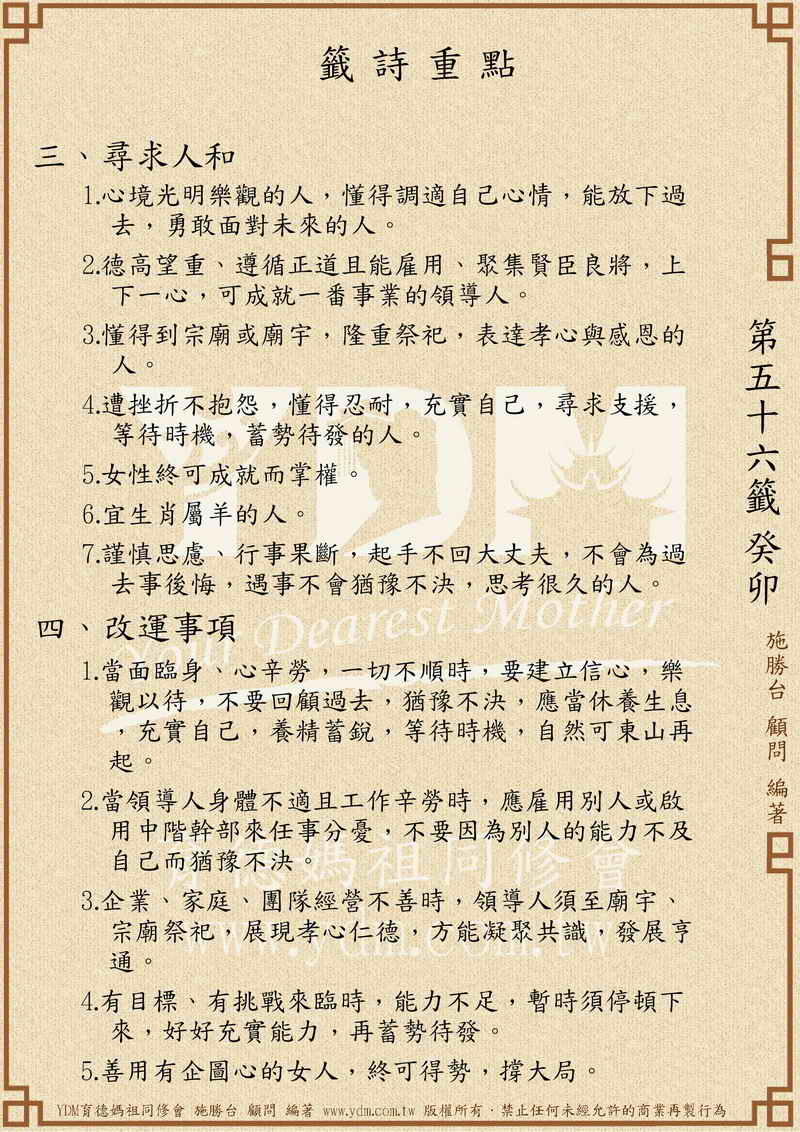 籤詩重點
三、尋求人和
1.心境光明樂觀的人，懂得調適自己心情，能放下過
去，勇敢面對未來的人。
2.德高望重、遵循正道且能雇用、聚集賢臣良將，上
下一心，可成就一番事業的領導人。
3.懂得到宗廟或廟宇，隆重祭祀，表達孝心與感恩的
人。
4.遭挫折不抱怨，懂得忍耐，充實自己，尋求支援，
等待時機，蓄勢待發的人。
5.女性終可成就而掌權。
6.宜生肖屬羊的人。
7.謹慎思慮、行事果斷，起手不回大丈夫，不會為過
去事後悔，遇事不會猶豫不決，思考很久的人。
四、改運事項
1.當面臨身、心辛勞，一切不順時，要建立信心，樂
觀以待，不要回顧過去，猶豫不決，應當休養生息
，充實自己，養精蓄銳，等待時機，自然可東山再
起。
2.當領導人身體不適且工作辛勞時，應雇用別人或啟
用中階幹部來任事分憂，不要因為別人的能力不及
自己而猶豫不決。
3.企業、家庭、團隊經營不善時，領導人須至廟宇、
宗廟祭祀，展現孝心仁德，方能凝聚共識，發展亨
通。
4.有目標、有挑戰來臨時，能力不足，暫時須停頓下
來，好好充實能力，再蓄勢待發。
5.善用有企圖心的女人，終可得勢，撐大局。
第五十六籤 癸卯
施勝台 顧問 編著
YDM
Your Dearest Mother
育德媽祖同修會
www.ydm.com.tw
YDM育德媽祖同修會 施勝台 顧問 編著 www.ydm.com.tw 版權所有．禁止任何未經允許的商業再製行為